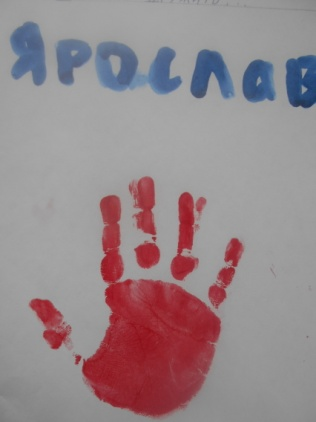 ЯРОСЛАВ